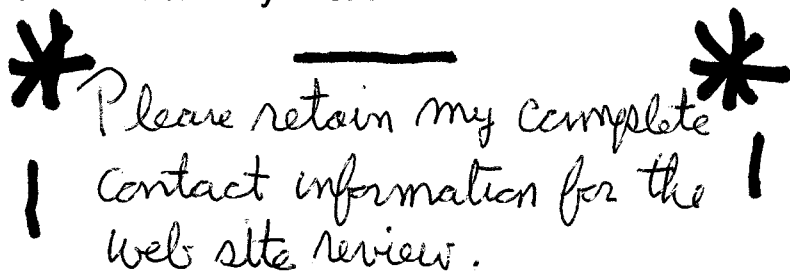 Please retain my complete
contact information for the
web site review.